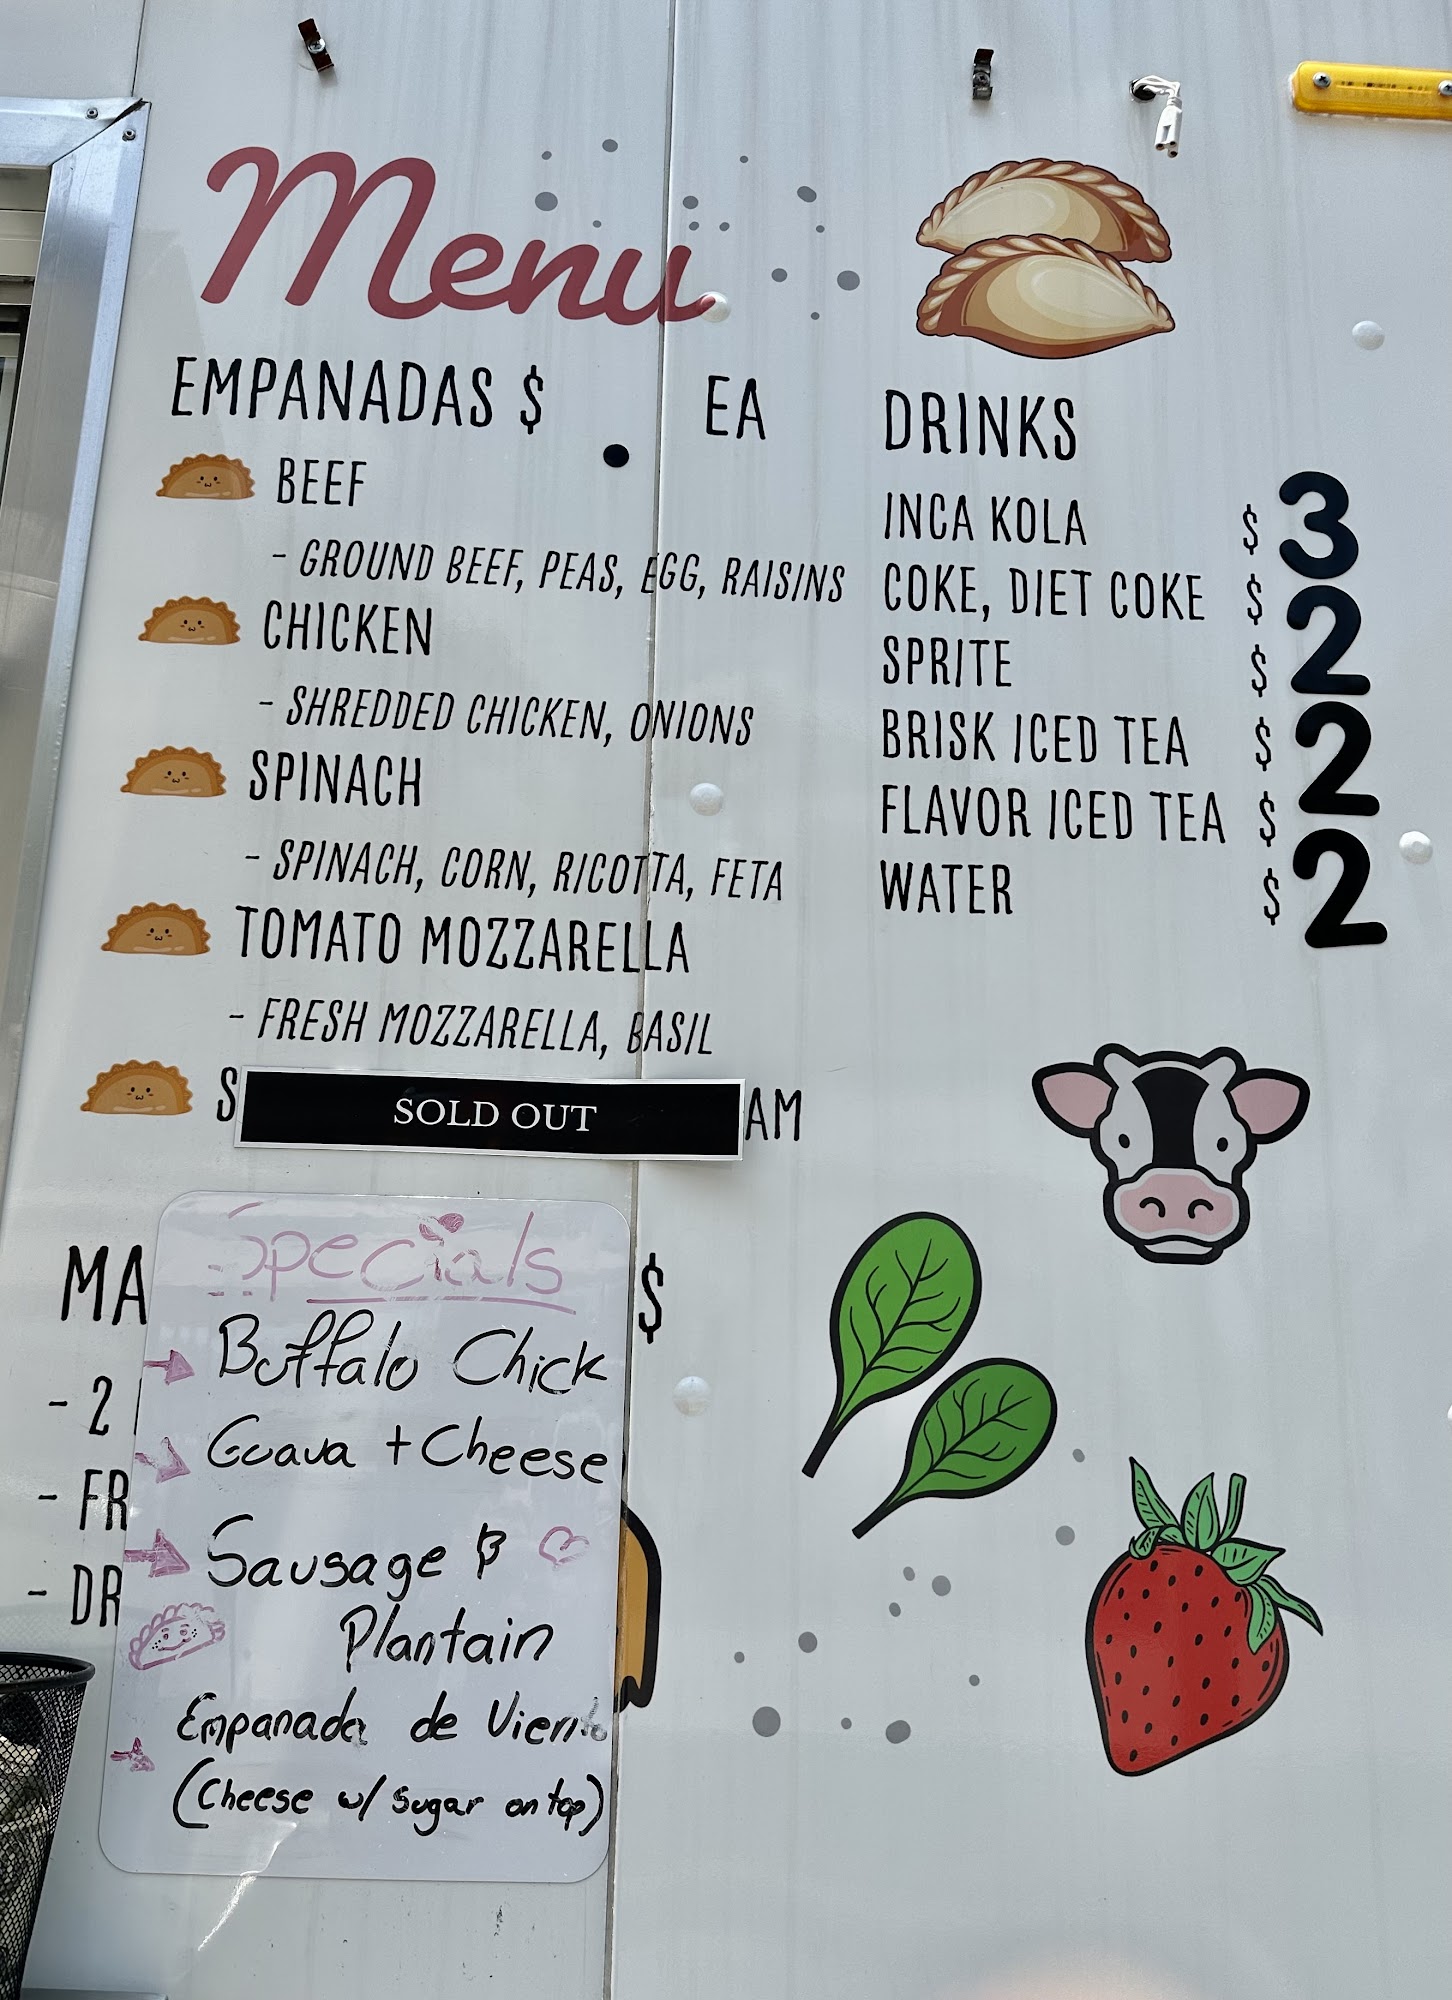 Menu
EMPANADAS $ . EA
BEEF
- GROUND BEEF, PEAS, EGG, RAISINS
CHICKEN
- SHREDDED CHICKEN, ONIONS
SPINACH
- SPINACH, CORN, RICOTTA, FETA
TOMATO MOZZARELLA
- FRESH MOZZARELLA, BASIL
S SOLD OUT AM
MA $
- 2
- FR
- DR
Specials
Buffalo Chick
Guava + Cheese
Sausage &
Plantain
Empanada de Viento
(Cheese w/ Sugar on top)
DRINKS
INCA KOLA $ 3
COKE, DIET COKE $ 2
SPRITE $
BRISK ICED TEA $ 2
FLAVOR ICED TEA $
WATER $ 2